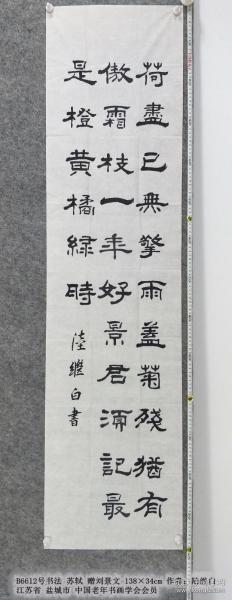 荷盡已無擎雨盖菊殘猶有
傲霜枝一年好景君湏記最
是橙黄橘緑時
陸繼白書
B6612号书法 苏轼 赠刘景文 138×34cm 作者：陆继白
江苏省 盐城市 中国老年书画学会会员